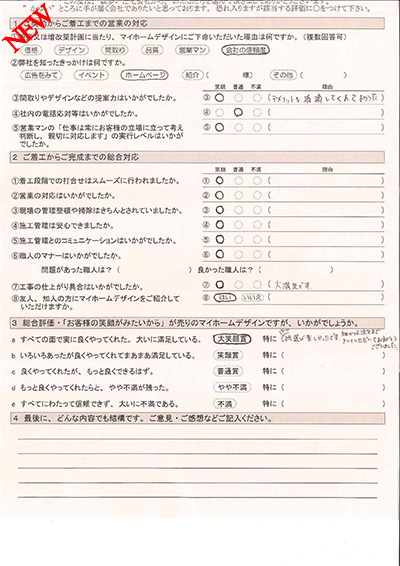 NEW
" かゆいところに手が届く会社でありたいと思っております。恐れ入りますが該当する評価に○をつけて下さい。
からご着工までの営業の対応
又は増改築計画に当たり、マイホームデザインにご下命いただいた理由は何ですか。(複数回答可)
価格 デザイン 間取り 品質 営業マン 会社の信頼度
②弊社を知ったきっかけは何ですか。
広告をみて イベント ホームページ 紹介( 様) その他( )
笑顔 普通 不満 理由
③間取りやデザインなどの提案力はいかがでしたか。 ③ (デメリットも してくれてよかった)
④社内の電話応対等はいかがでしたか。 ④
⑤営業マンの「仕事は常にお客様の立場に立って考え
判断し、親切に対応します」の実行レベルはいかが
でしたか。 ⑤
2 ご着工からご完成までの総合対応
笑顔 普通 不満 理由
①着工段階での打合せはスムーズに行われましたか。 ①
②営業の対応はいかがでしたか。 ②
③現場の管理整頓や掃除はきちんとされていましたか。 ③
④施工管理は安心できましたか。 ④
⑤施工管理とのコミュニケーションはいかがでしたか。 ⑤
⑥職人のマナーはいかがでしたか。 ⑥
問題があった職人は?( ) 良かった職人は?( )
⑦工事の仕上がり具合はいかがでしたか。 ⑦ (大満足です。
⑧友人、知人の方にマイホームデザインをご紹介して
いただけますか。 ⑧ はい いいえ
3 総合評価・「お客様の笑顔がみたいから」が売りのマイホームデザインですが、いかがでしょうか。
a すべての面で実に良くやってくれた。大いに満足している。 大笑顔賞 特に(
b いろいろあったが良くやってくれてまあまあ満足している。 笑顔賞 特に(
c 良くやってくれたが、もっと良くできるはず。 普通賞 特に(
d もっと良くやってくれたらと、やや不満が残った。 やや不満 特に(
e すべてにわたって信頼できず、大いに不満である。 不満 特に(
4 最後に、どんな内容でも結構です。ご意見・ご感想などご記入ください。